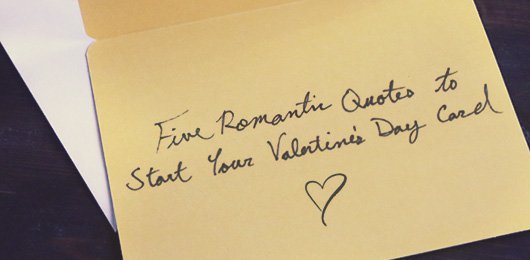 Five Romantic Quotes to
Start Your Valentine's Day Card